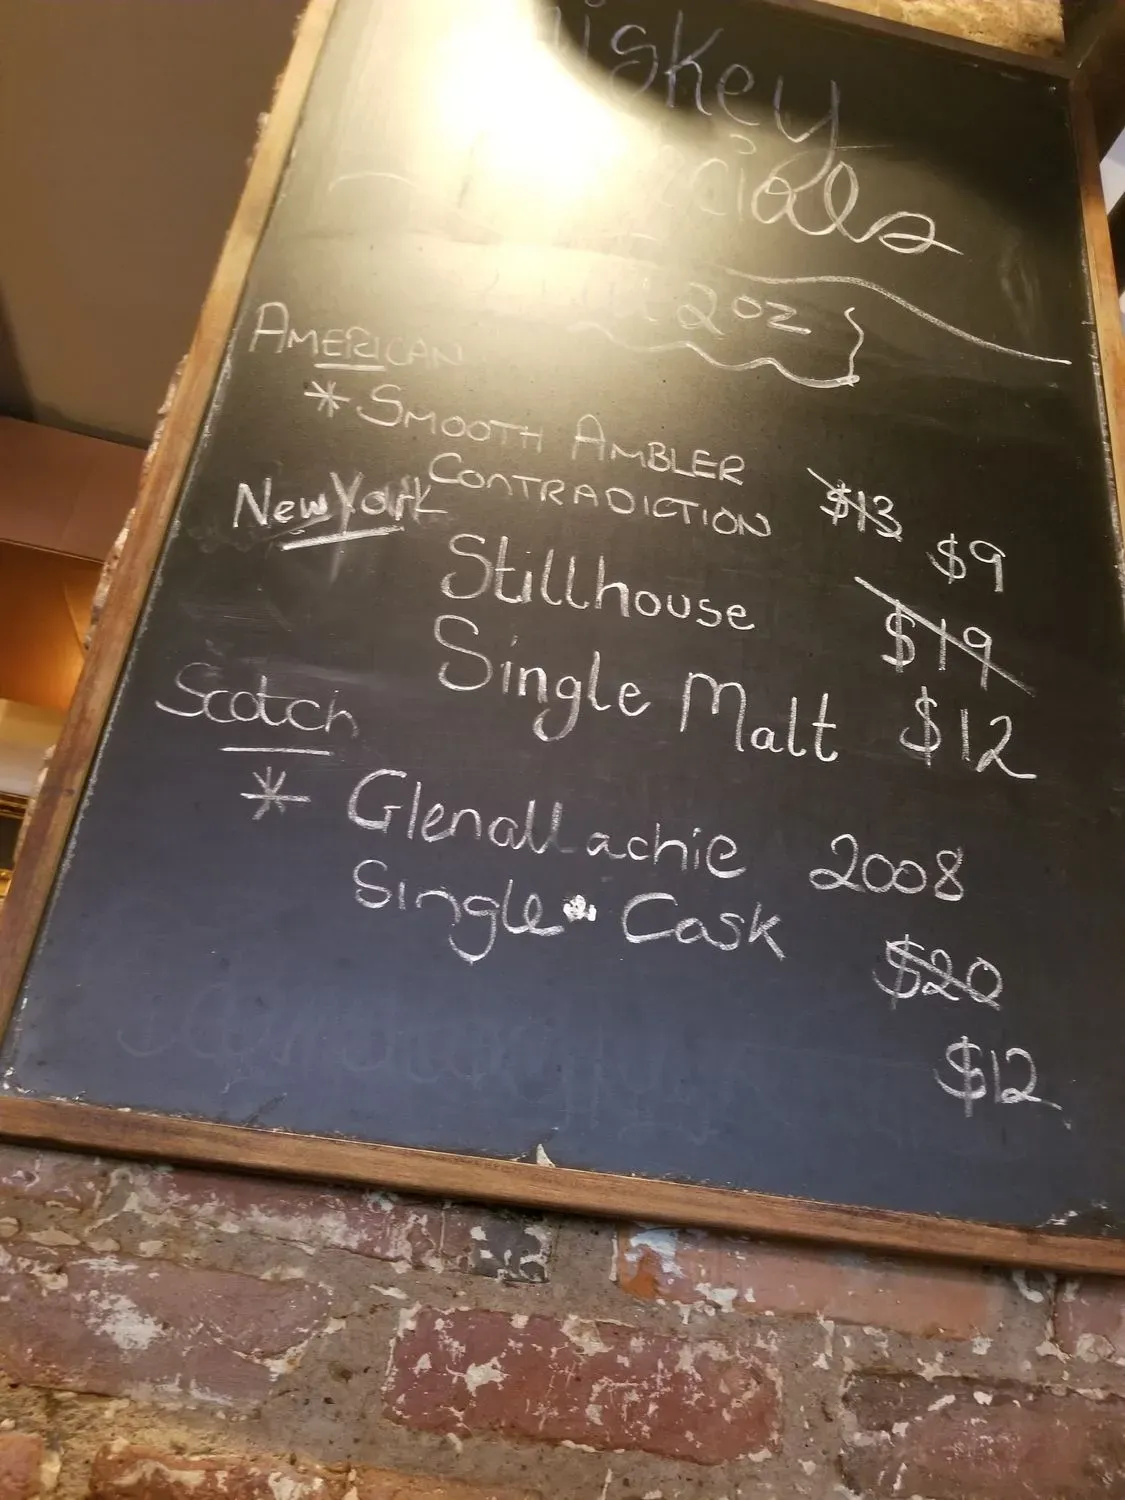 iskey
cials
2oz
AMERICAN
* SMOOTH AMBLER
CONTRADICTION $13 $9
New York
Stillhouse $19
Single Malt $12
Scotch
* Glenallachie 2008
Single Cask $20
$12